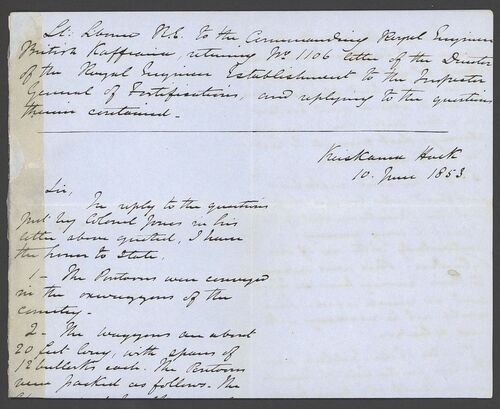 Lt: R.E. to the Commanding Royal Engineer
British Kaffraria, returning No. 1106 letter of the Director
of the Royal Engineer Establishment to the Inspector
General of Fortifications, and replying to the questions
therein contained -
Keiskama Hoek
10. June 1853.
Sir,
In reply to the questions
put by Colonel Jones in his
letter above quoted, I have
the honor to state,
1 - The Pontoons were conveyed
in the oxwaggons of the
country -
2 - The waggons are about
20 feet long, with spans of
12 bullocks each. The Pontoons
were packed as follows. The